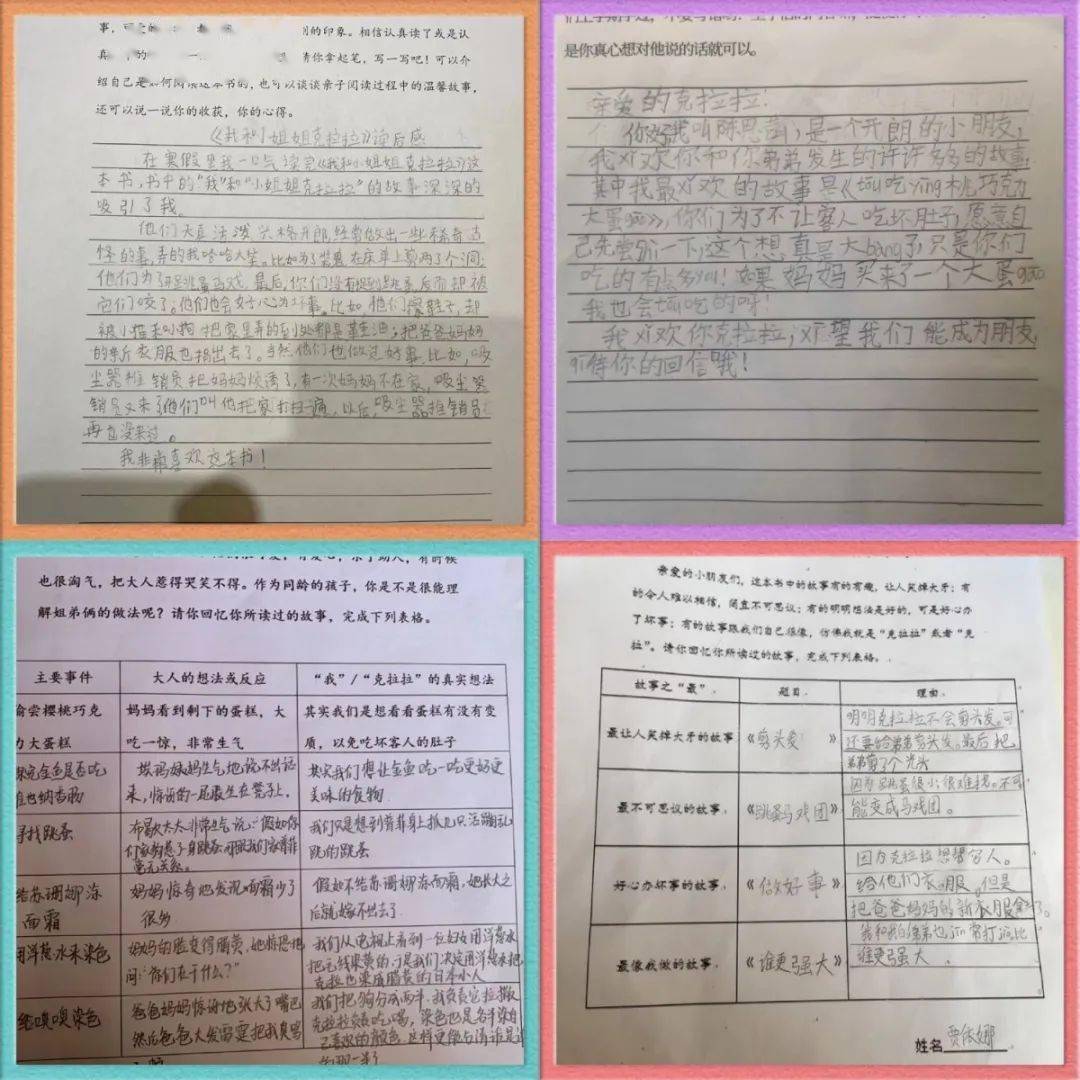 事，可
的印象。相信认真读了或是认
真 的 请你拿起笔，写一写吧！可以介
绍自己是如何阅读这本书的，也可以谈谈亲子阅读过程中的温馨故事，
还可以说一说你的收获，你的心得。
《我和小姐姐克拉拉》读后感
在寒假里我一口气读完《我和小姐姐克拉拉》这
本书，书中的"我"和"小姐姐克拉拉"的故事深深的
吸引了我。
他们天真活泼 性格开朗，经常做出一些稀奇古
怪的事，弄的我哈哈大笑。比如为了 在床单上剪两了个洞，
他们为了 跳蚤马戏，最后，你们没有捉到跳蚤后而却被
它们咬了。他们也会好心办坏事。比如，他们擦鞋子，却
被小猫和小狗 把家里弄的到处都是鞋油；把爸爸妈妈
的新衣服也捐出去了。当然他们也做过好事，比如，吸
尘器推销员把妈妈烦透了，有一次妈妈不在家，吸尘器
销员又来了他们叫他把家打扫一遍，以后，吸尘器推销员
再也没来过。
我非常喜欢这本书！
是你真心想对他说的话就可以。
亲爱的克拉拉！
你好我叫陈思 ，是一个开朗的小朋友，
我xǐ欢你和你弟弟发生的许许多多的故事，
其中我最xǐ欢的故事是《tōu吃yīng桃巧克力
大蛋gāo》，你们为了不让客人吃坏肚子，愿意自
己先尝 一下，这个想 真是太bàng了，只是你们
吃的有点多 ！如果妈妈买来了一个大蛋gāo
我也会tōu吃的呀！
我xǐ欢你克拉拉，xī望我们能成为朋友，
等待你的回信哦！
也很淘气，把大人惹得哭笑不得。作为同龄的孩子，你是不是很能理
解姐弟俩的做法呢？请你回忆你所读过的故事，完成下列表格。
主要事件 大人的想法或反应 "我"/"克拉拉"的真实想法
偷尝樱桃巧克力大蛋糕 妈妈看到剩下的蛋糕，大吃一惊，非常生气 其实我们是想看看蛋糕有没有变质，以免吃坏客人的肚子
金鱼是否吃维也纳香肠 埃玛姨妈生气地说不出话来，惊讶的一屁股坐在凳子上， 其实我们想让金鱼吃一吃更好更美味的食物
寻找跳蚤 布 太太非常生气说："假如你们家狗惹了身跳蚤，可跟我们家菲菲毫无关系。 我们只是想到菲菲身上抓几只活蹦乱跳的跳蚤
给苏珊娜涂面霜 妈妈惊奇地发现面霜少了很多 假如不给苏珊娜涂面霜，她长大之后就嫁不出去了
用洋葱水来染色 妈妈的脸变得腊黄，她惊恐地问："你们在干什么？" 我们从电视上看到一位好女用洋葱水把毛线染黄的，于是我们决定用洋葱水把克拉拉染成腊黄的日本小人
给嗅嗅染色 爸爸妈妈惊讶地张大了嘴巴 然后爸爸大发雷霆把我臭骂 我们把狗分成两半，我负责它拉撒 克拉拉负责吃喝，染色也是各半染自己喜欢的颜色，这样更能分清谁是谁
亲爱的小朋友们，这本书中的故事有的有趣，让人笑掉大牙；有
的令人难以相信，简直不可思议；有的明明想法是好的，可是好心办
了坏事；有的故事跟我们自己很像，仿佛我就是"克拉拉"或者"克
拉"。请你回忆你所读过的故事，完成下列表格。
故事之"最" 题目 理由
最让人笑掉大牙的故事 《剪头发》 明明克拉拉不会剪头发。可还要给弟弟剪头发。最后把弟弟剪了个光头
最不可思议的故事， 《跳蚤马戏团》 因为跳蚤很小很难找。不可能变成马戏团。
好心办坏事的故事， 《做好事》 因为克拉拉想帮穷人。给他们衣服。但是把爸爸妈妈的新衣服拿了。
最像我做的故事， 《谁更强大》 我和我的弟弟也 常打 比谁更强大。
姓名 贾依娜